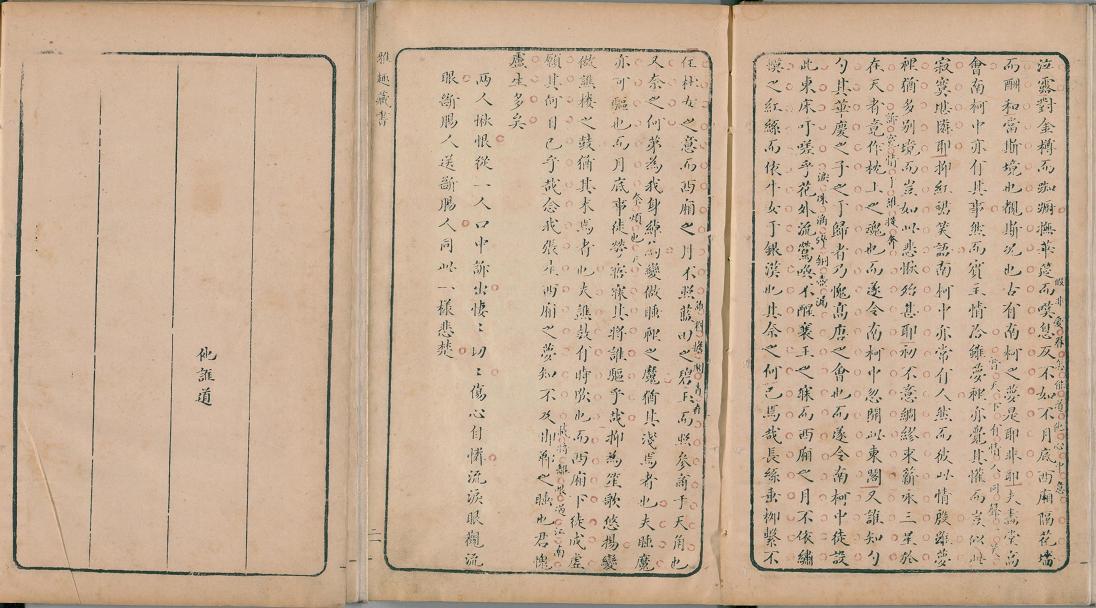 泣露對金樽而踟蹰撫華筵而嘆息反不如不月底西廂隔花墻
而酬和當斯境也覩斯况也古有南柯之夢是耶非耶夫畵堂高
會南柯中亦有其事然而賓主情洽雖夢裡亦覺其懽而豈似此
寂寞堪隣耶抑紅裙笑語南柯中亦常有人然而彼此情殷雖夢
裡猶多别境而豈如此悲愀殆甚耶初不意綢繆束薪承三星於
在天者竟作枕上之魂也而遂令南柯中忽開此東閣又誰知勺
勺其華慶之子之于歸者乃愧高唐之會也而遂令南柯中徒設
此東床吁嗟乎花外流鶯喚不醒襄王之寐而西廂之月不依繡
幙之紅絲而依牛女于銀漢也其奈之何已焉哉長絲垂柳繫不
住杜女之意而西廂之月不照藍田之碧玉而照參商于天角也
又奈之何第為我身緣為變做睡裡之魔猶其淺焉者也夫睡魔
亦可驅也而月底事徒勞寤寐其將誰驅乎哉抑為笙歌悠揚變
做譙楼之鼓猶其末焉者也夫譙鼓有時歇也而西廂下徒成虚
願其何日已乎哉念我張生西廂之夢知不及邯鄲之睡也君愧
盧生多矣
兩人愀恨從一人口中訴出悽〻切〻傷心自憐流淚眼觀流
眼斷腸人送斷腸人同此一樣悲楚
訴衷情
淚珠滴碎銅壺漏
當天下有情人同聲一哭
離恨過江南
雅趣藏書
二
他誰道